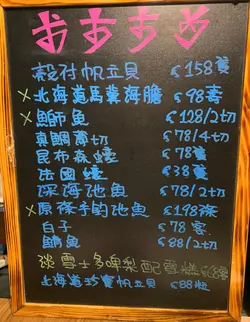 おすすめ
殻付帆立貝 $158隻
×北海道馬糞海膽 $98壽
×鰤魚 $128/2切
真鯛薄切 $78/4切
昆布森蠔 $78隻
法國蠔 $38隻
深海池魚 $78/2切
×原條手釣池魚 $198條
白子 $78客
鯖魚 $88/2切
淡雪士多啤梨配雪糕
北海道珍寶帆立貝 $88粒